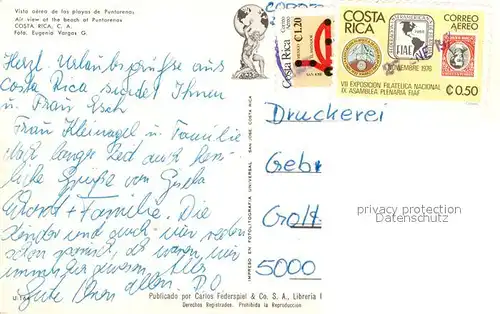 Vista aérea de las playas de Puntarenas
Air view at the beach of Puntarenas
COSTA RICA, C. A.
Foto. Eugenio Vargas G.
Herzl. Urlaubsgrüsse aus
Costa Rica sendet Ihnen
u Frau Esch
Frau Kleinagel u Familie
Nach langer Zeit auch herz-
liche Grüße von Gisela
+ Familie. Die
Kinder und auch wir reden
schon spanisch, als wären wir
immer hier gewesen. Alles
Gute Ihnen allen.
Publicado por Carlos Federspiel & Co. S. A., Librería I
Derechos Registrados. Prohibida la Reproducción
IMPRESO EN FOTOLITOGRAFIA UNIVERSAL - SAN JOSE, COSTA RICA
Costa Rica
Correo Aéreo
₡1.20
COSTA RICA
CORREO
AEREO
FIAF
NOVIEMBRE 1976
VII EXPOSICION FILATELICA NACIONAL
IX ASAMBLEA PLENARIA FIAF
₡0.50
Druckerei
Gebr
Golt
5000
privacy protection
Datenschutz